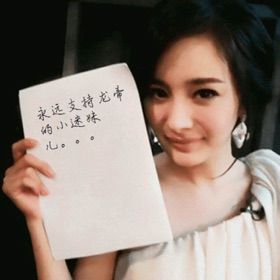 永远支持龙帝
的小迷妹
儿。。。